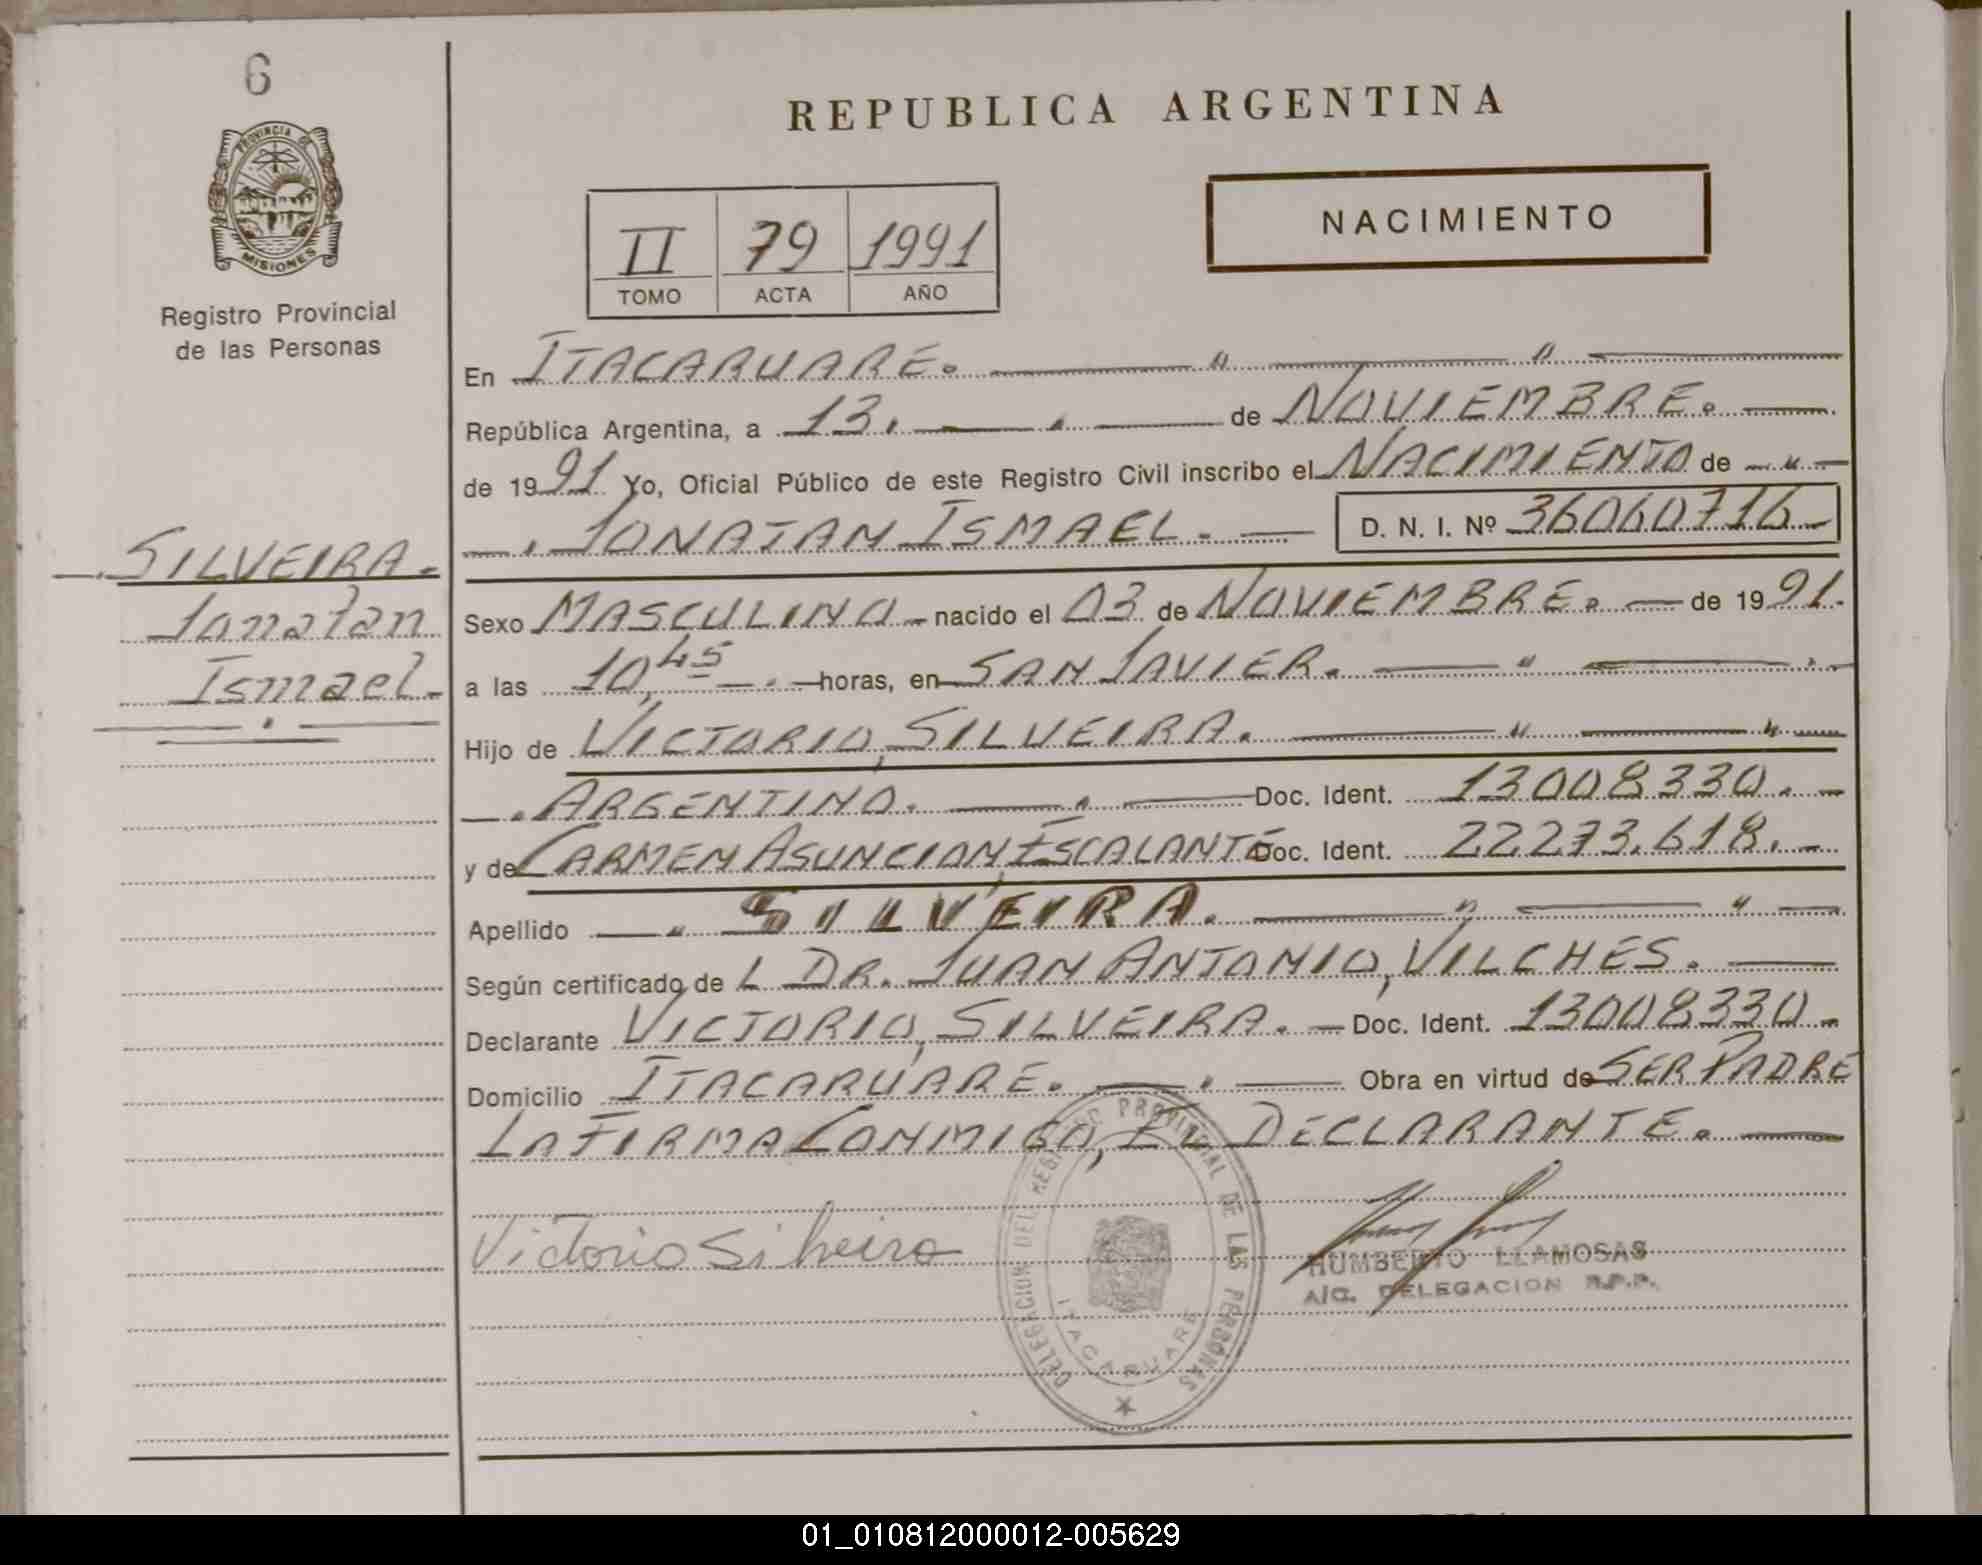 6
PROVINCIA DE
MISIONES
Registro Provincial
de las Personas
SILVEIRA.
Jonatan
Ismael
REPUBLICA ARGENTINA
NACIMIENTO
II 79 1991
TOMO ACTA AÑO
En ITACARUARE.
República Argentina, a 13. de NOVIEMBRE.
de 1991 Yo, Oficial Público de este Registro Civil inscribo el NACIMIENTO de
JONATAN ISMAEL. D. N. I. Nº 36060716
Sexo MASCULINO nacido el 03 de NOVIEMBRE. de 1991.
a las 10,45 horas, en SAN JAVIER.
Hijo de VICTORIO, SILVEIRA.
ARGENTINO. Doc. Ident. 13008330.
y de CARMEN ASUNCION, ESCALANTE Doc. Ident. 22.273.618.
Apellido SILVEIRA.
Según certificado de L DR. JUAN ANTONIO, VILCHES.
Declarante VICTORIO, SILVEIRA. Doc. Ident. 13008330.
Domicilio ITACARUARE. Obra en virtud de SER PADRE
LA FIRMA CONMIGO, EL DECLARANTE.
Victorio Silveira
DELEGACION DEL REGISTRO PROVINCIAL DE LAS PERSONAS
ITACARUARE
HUMBERTO LLAMOSAS
A/C. DELEGACION R.P.P.
01_010812000012-005629